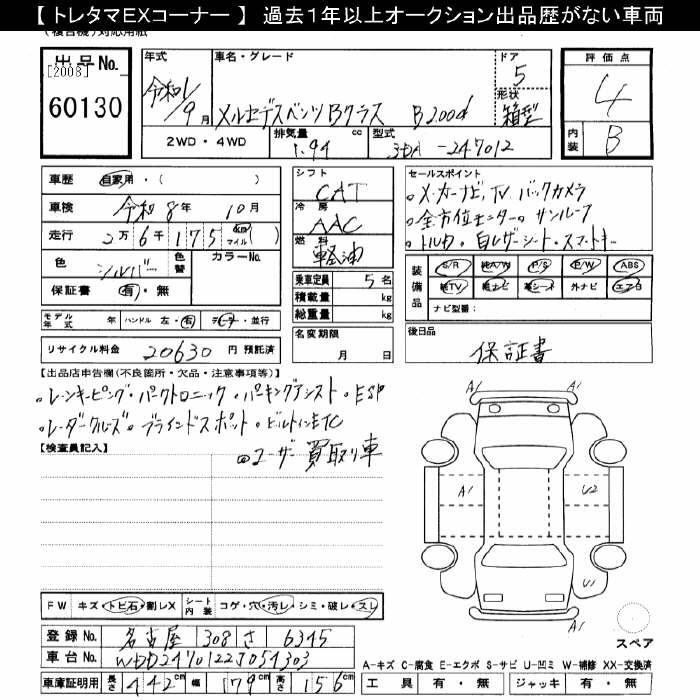 【 トレタマEXコーナー 】 過去1年以上オークション出品歴がない車両
出品No.
[2008]
60130
年式
令和1/9月
車名・グレード
メルセデスベンツ Bクラス B200d
ドア
5
形状
箱型
2WD・4WD
排気量 cc
1.94
型式
3DA-247012
評価点
4
内装
B
車歴 自家用・( )
車検 令和8年10月
走行 2万6千175 km マイル ( )
色 シルバー
色替
カラーNo.
保証書 有・無
シフト
CAT
冷房
AAC
燃料
軽油
乗車定員 5名
積載量 kg
総重量 kg
名変期限
月 日
セールスポイント
。メーカーナビ、TV バックカメラ
。全方位モニター。サンルーフ
・トルカ・自レザーシート・スマートキー
装備品
S/R 純A/W P/S P/W ABS
純TV 純ナビ 革シート 外ナビ エアB
ナビ型番:
モデル年式 年 ハンドル 左・右 ディーラー・並行
後日品
保証書
リサイクル料金 20630 円 預託済
【出品店申告欄(不良箇所・欠品・注意事項等)】
。レーンキーピング・パークトロニック・パーキングアシスト・ESP
。レーダークルーズ・ブラインドスポット・ビルトインETC
【検査員記入】
ユーザー買取り車
A1
A1
A1
U2
U1
A1
FW キズ・トビ石・割レX
シート内装 コゲ・穴・汚レ・シミ・破レ・スレ
スペア
登録No. 名古屋 308 さ 6345
車台No. WDD2470122J054303
A-キズ C-腐食 E-エクボ S-サビ U-凹ミ W-補修 XX-交換済
車庫証明用 長さ 442cm 幅 179cm 高さ 156cm
工具 有・無 ジャッキ 有・無